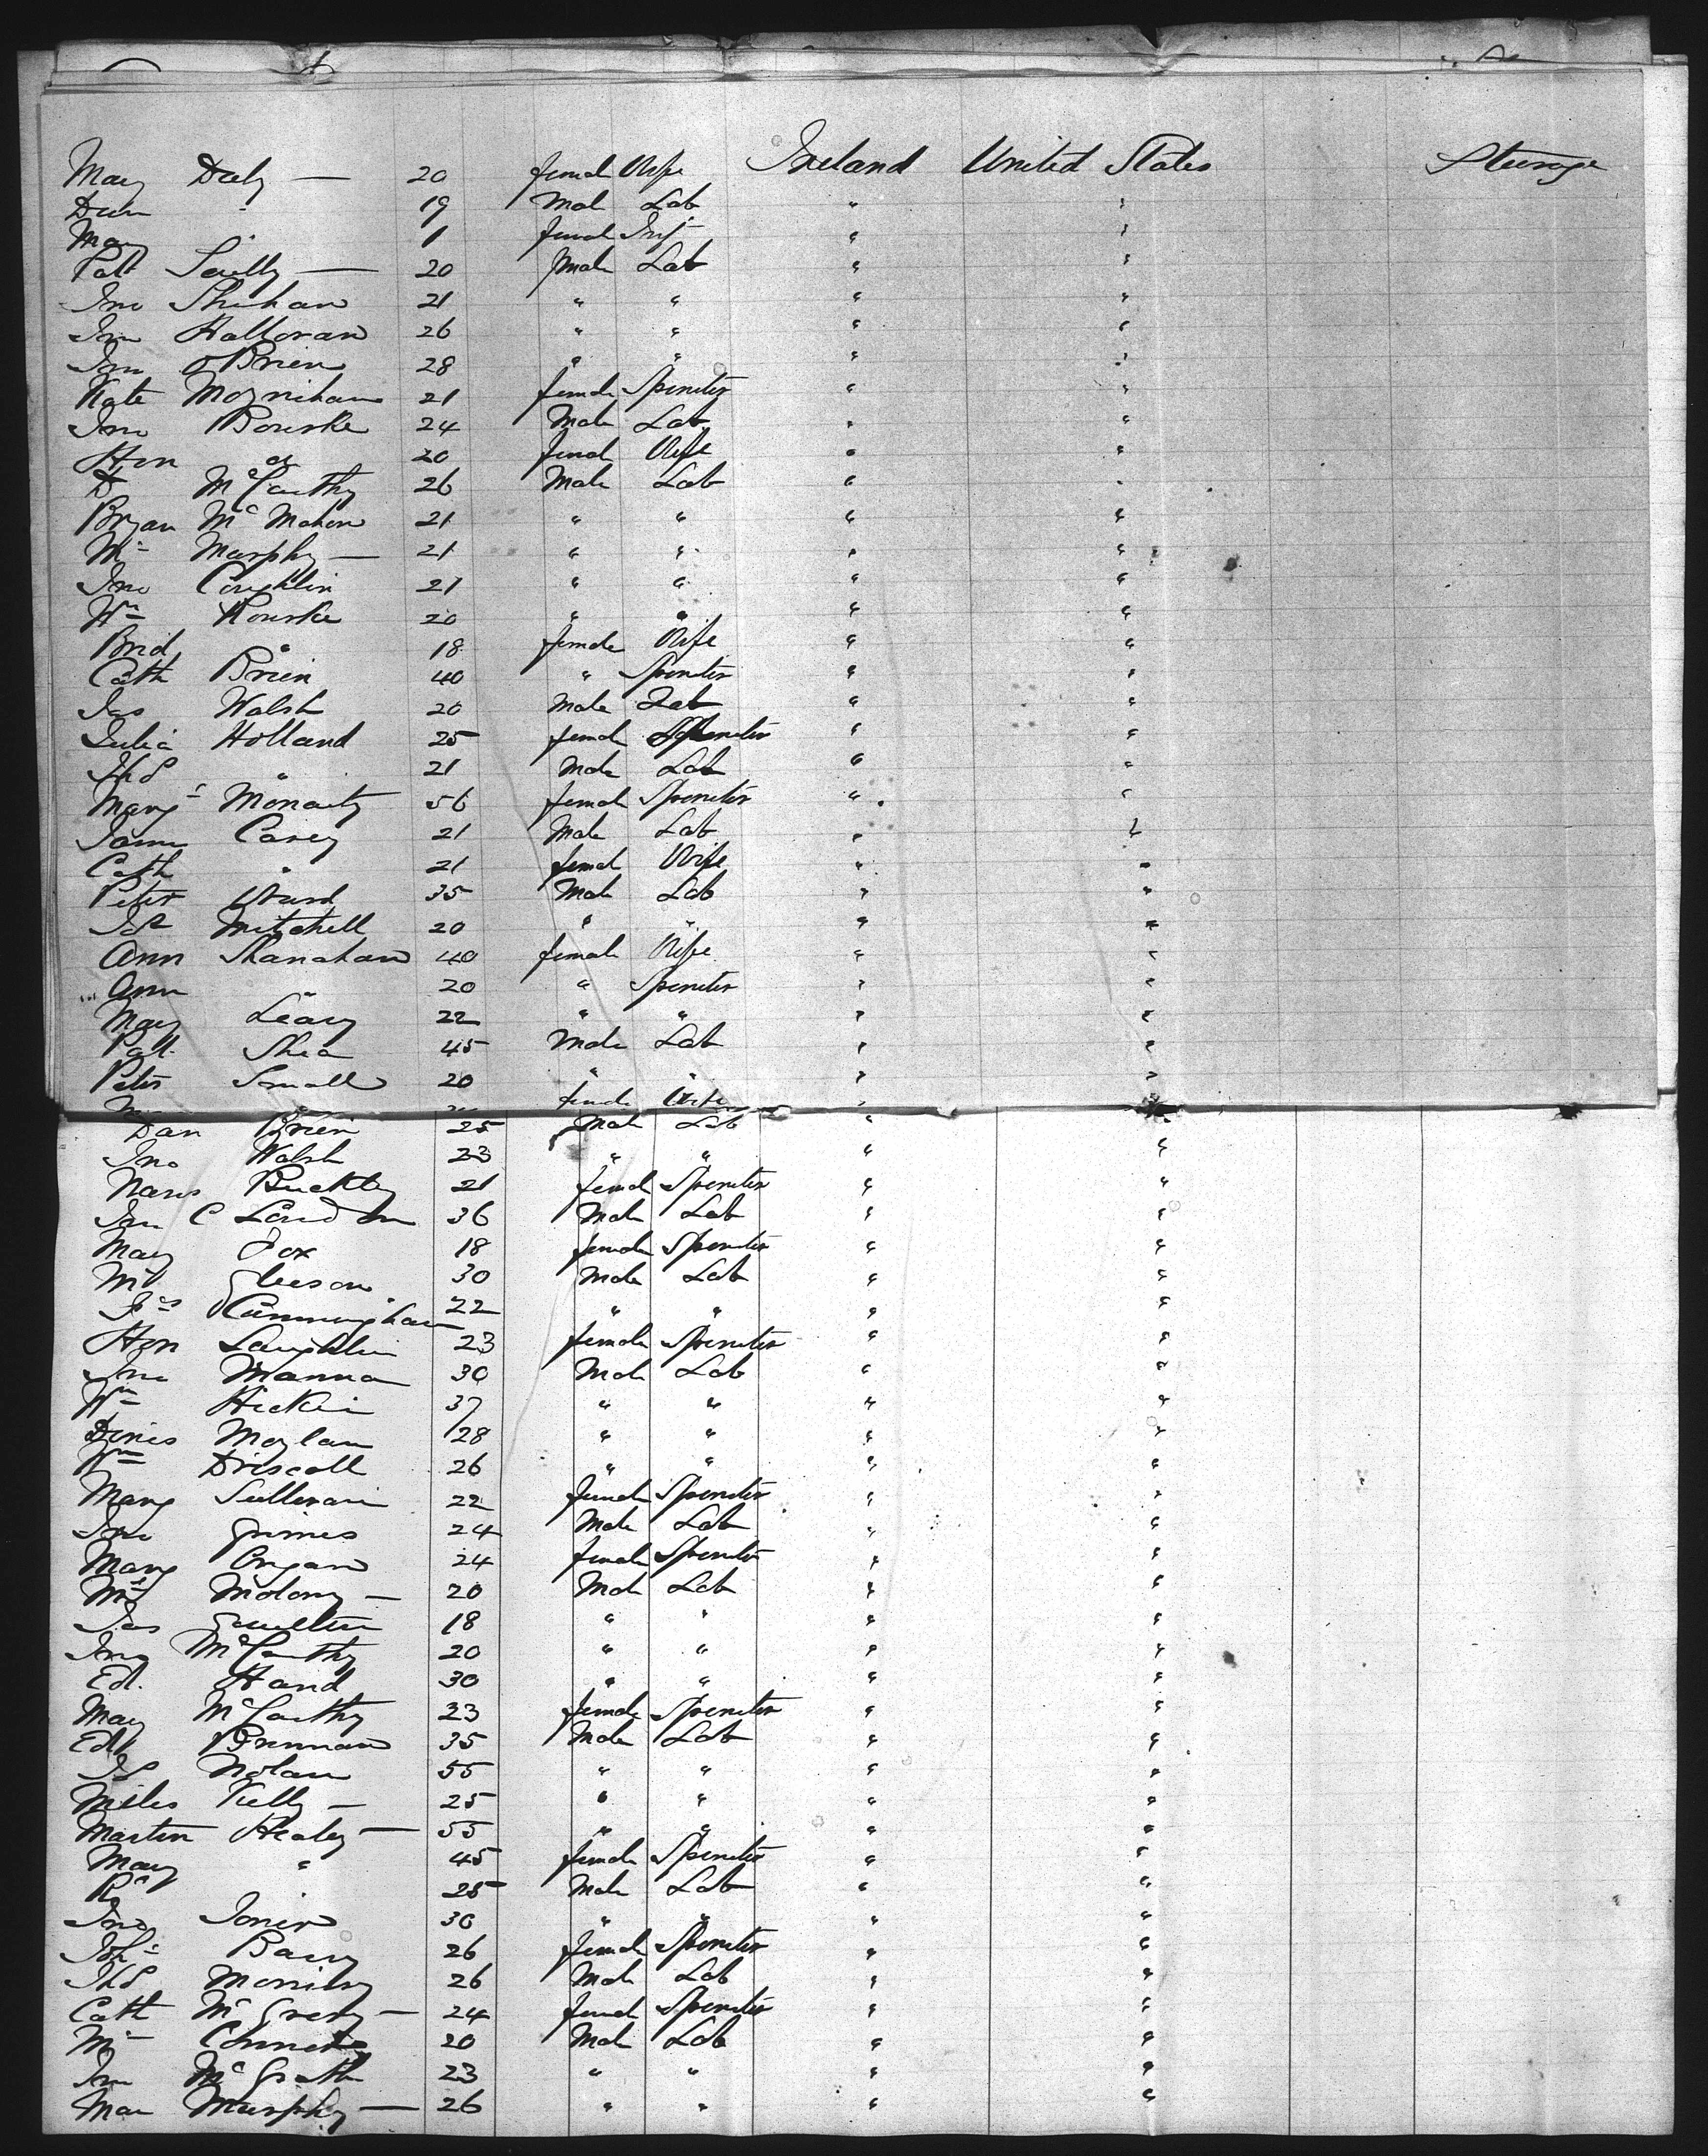 Mary Daly — 20 femal Wife Ireland United States Steerage
Dan " 19 Male Lab " "
Mary " 1 femal Inf " "
Patt Scully — 20 Male Lab " "
Jno Shehan 21 " " " "
Jno Halloran 26 " " " "
Jno OBrien 28 " " " "
Kate Moynihan 21 female Spinster " "
Jno Bourke 24 Male Lab " "
Hon " 20 femal Wife " "
D McCarthy 26 Male Lab " "
Bryan McMahon 21 " " " "
Ml Murphy — 21 " " " "
Jno Coughlin 21 " " " "
Wm Rourke 20 " " " "
Brid " 18 female Wife " "
Cath Brien 40 " Spinster " "
Jas Walsh 20 Male Lab " "
Julia Holland 25 femal Spinster " "
Thos " 21 Male Lab " "
Margt Moriarty 56 femal Spinster " "
James Carey 21 Male Lab " "
Cath " 21 femal Wife " "
Peter Ward 35 Male Lab " "
Jos Mitchell 20 " " " "
Ann Shanahan 40 female Wife " "
Ann " 20 " Spinster " "
Mary Leary 22 " " " "
Patt Shea 45 Male Lab " "
Peter Small 20 " " " "
female Wife "
Dan Brien 25 Male Lab " "
Jno Walsh 23 " " " "
Buckley 21 femal Spinster " "
36 Male Lab " "
Mary Fox 18 female Spinster " "
Ml Gleeson 30 Male Lab " "
Cunningham 22 " " " "
Hon Laughlin 23 female Spinster " "
Jno Manna 30 Male Lab " "
Wm 37 " " " "
Denis Moylan 28 " " " "
Wm Driscoll 26 " " " "
Marg Sullivan 22 female Spinster " "
Jno Grimes 24 Male Lab " "
Marg 24 female Spinster " "
Ml Molony — 20 Male Lab " "
Jas 18 " " " "
Jno McCarthy 20 " " " "
Ed. Hand 30 " " " "
Mary McCarthy 23 female Spinster " "
Ed Brennan 35 Male Lab " "
Nolan 55 " " " "
Miles Kelly — 25 " " " "
Martin Healey — 55 " " " "
Mary " 45 female Spinster " "
" 25 Male Lab " "
Jno 30 " " " "
Barry 26 female Spinster " "
Thos Morrissy 26 Male Lab " "
Cath — 24 femal Spinster " "
Ml 20 Male Lab " "
Jno McGrath 23 " " " "
Murphy — 26 " " " "